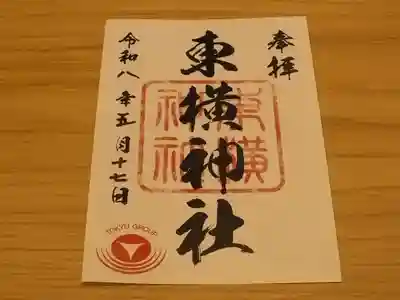 奉拝
東横神社
東横神社
令和八年五月十七日
TOKYU GROUP